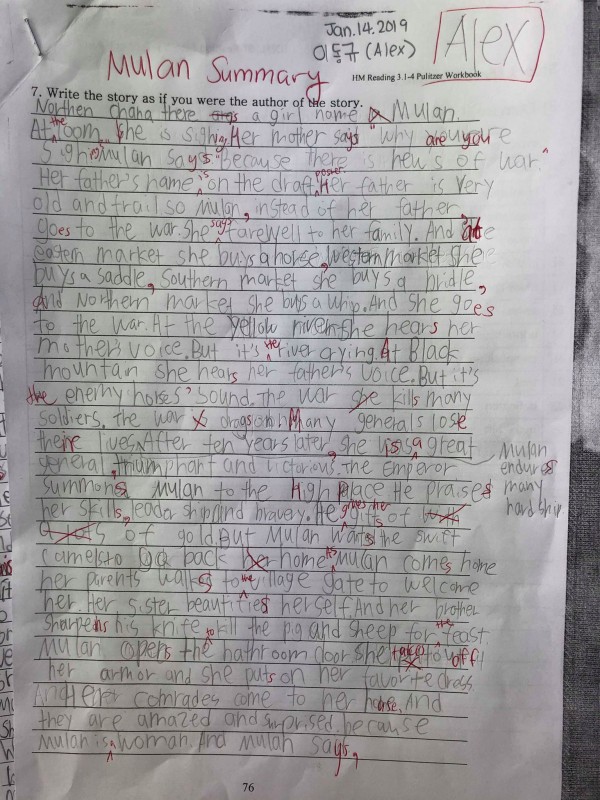 Jan.14.2019
이동규 (Alex)
Alex
Mulan Summary
HM Reading 3.1-4 Pulitzer Workbook
7. Write the story as if you were the author of the story.
Northen China there a girl name Mulan.
At the loom, she is sighing. Her mother says "why are you
sighing Mulan says "Because there is new's of war."
Her father's name is on the draft poster. Her father is very
old and frail so Mulan, instead of her father,
goes to the war. She says farewell to her family. And at the
eastern market she buys a horse, western market she
buys a saddle, Southern market she buys a bridle,
and Northern market she buys a whip. And she goes
to the war. At the Yellow river she hears her
mother's voice. But it's the river crying. At Black
mountain she hears her father's voice. But it's
the enemy horses' sound. The war kills many
soldiers. the war drags on Many generals lose
their lives. After ten years later, she is a great
general, triumphant and victorious. The Emperor
Mulan
endures
many
hardship
summons Mulan to the High Place He praises
her skills, leadership and bravery. He gives her gifts of
of gold. But Mulan wants the swift
camels to go back home. As Mulan comes home
her parents walks to the village gate to welcome
her. Her sister beautifies herself. And her brother
sharpens his knife to kill the pig and sheep for the feast.
Mulan opens the bathroom door she takes off
her armor and she puts on her favorite dress
And her comrades come to her house. And
they are amazed and surprised because
Mulan is a woman. And Mulan says,
76